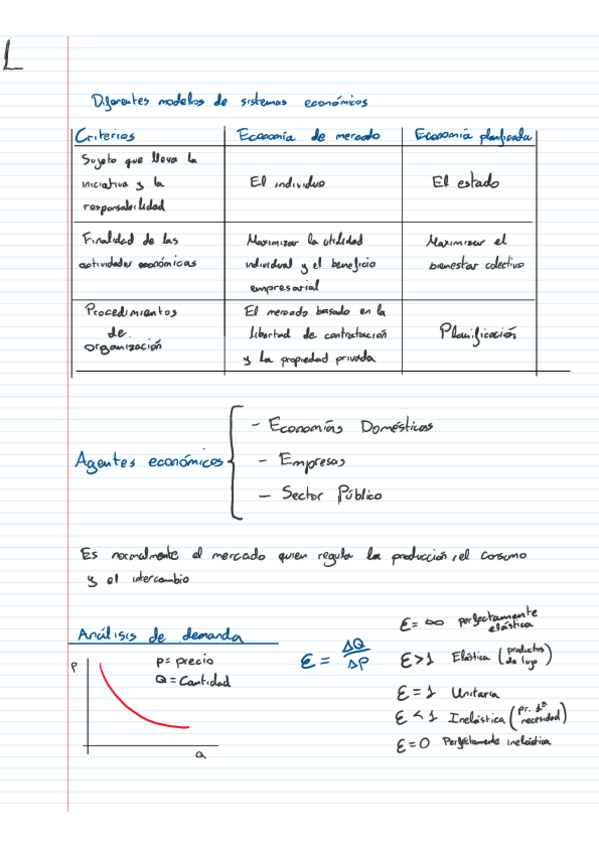 L
Diferentes modelos de sistemas económicos
Criterios Economía de mercado Economía planificada
Sujeto que lleva la
iniciativa y la
responsabilidad
El individuo
El estado
Finalidad de las
actividades económicas
Maximizar la utilidad
individual y el beneficio
empresarial
Maximizar el
bienestar colectivo
Procedimientos
de
organización
El mercado basado en la
libertad de contratación
y la propiedad privada
Planificación
Agentes económicos
- Economías Domésticas
- Empresas
- Sector Público
Es normalmente el mercado quien regula la producción, el consumo
y el intercambio
Análisis de demanda
P
P= precio
Q = Cantidad
Q
Ɛ = ΔQ
ΔP
Ɛ = ∞ perfectamente
elástica
Ɛ > 1 Elástica (productos
de lujo)
Ɛ = 1 Unitaria
Ɛ < 1 Inelástica (pr. 1ª
necesidad)
Ɛ = 0 Perfectamente inelástica